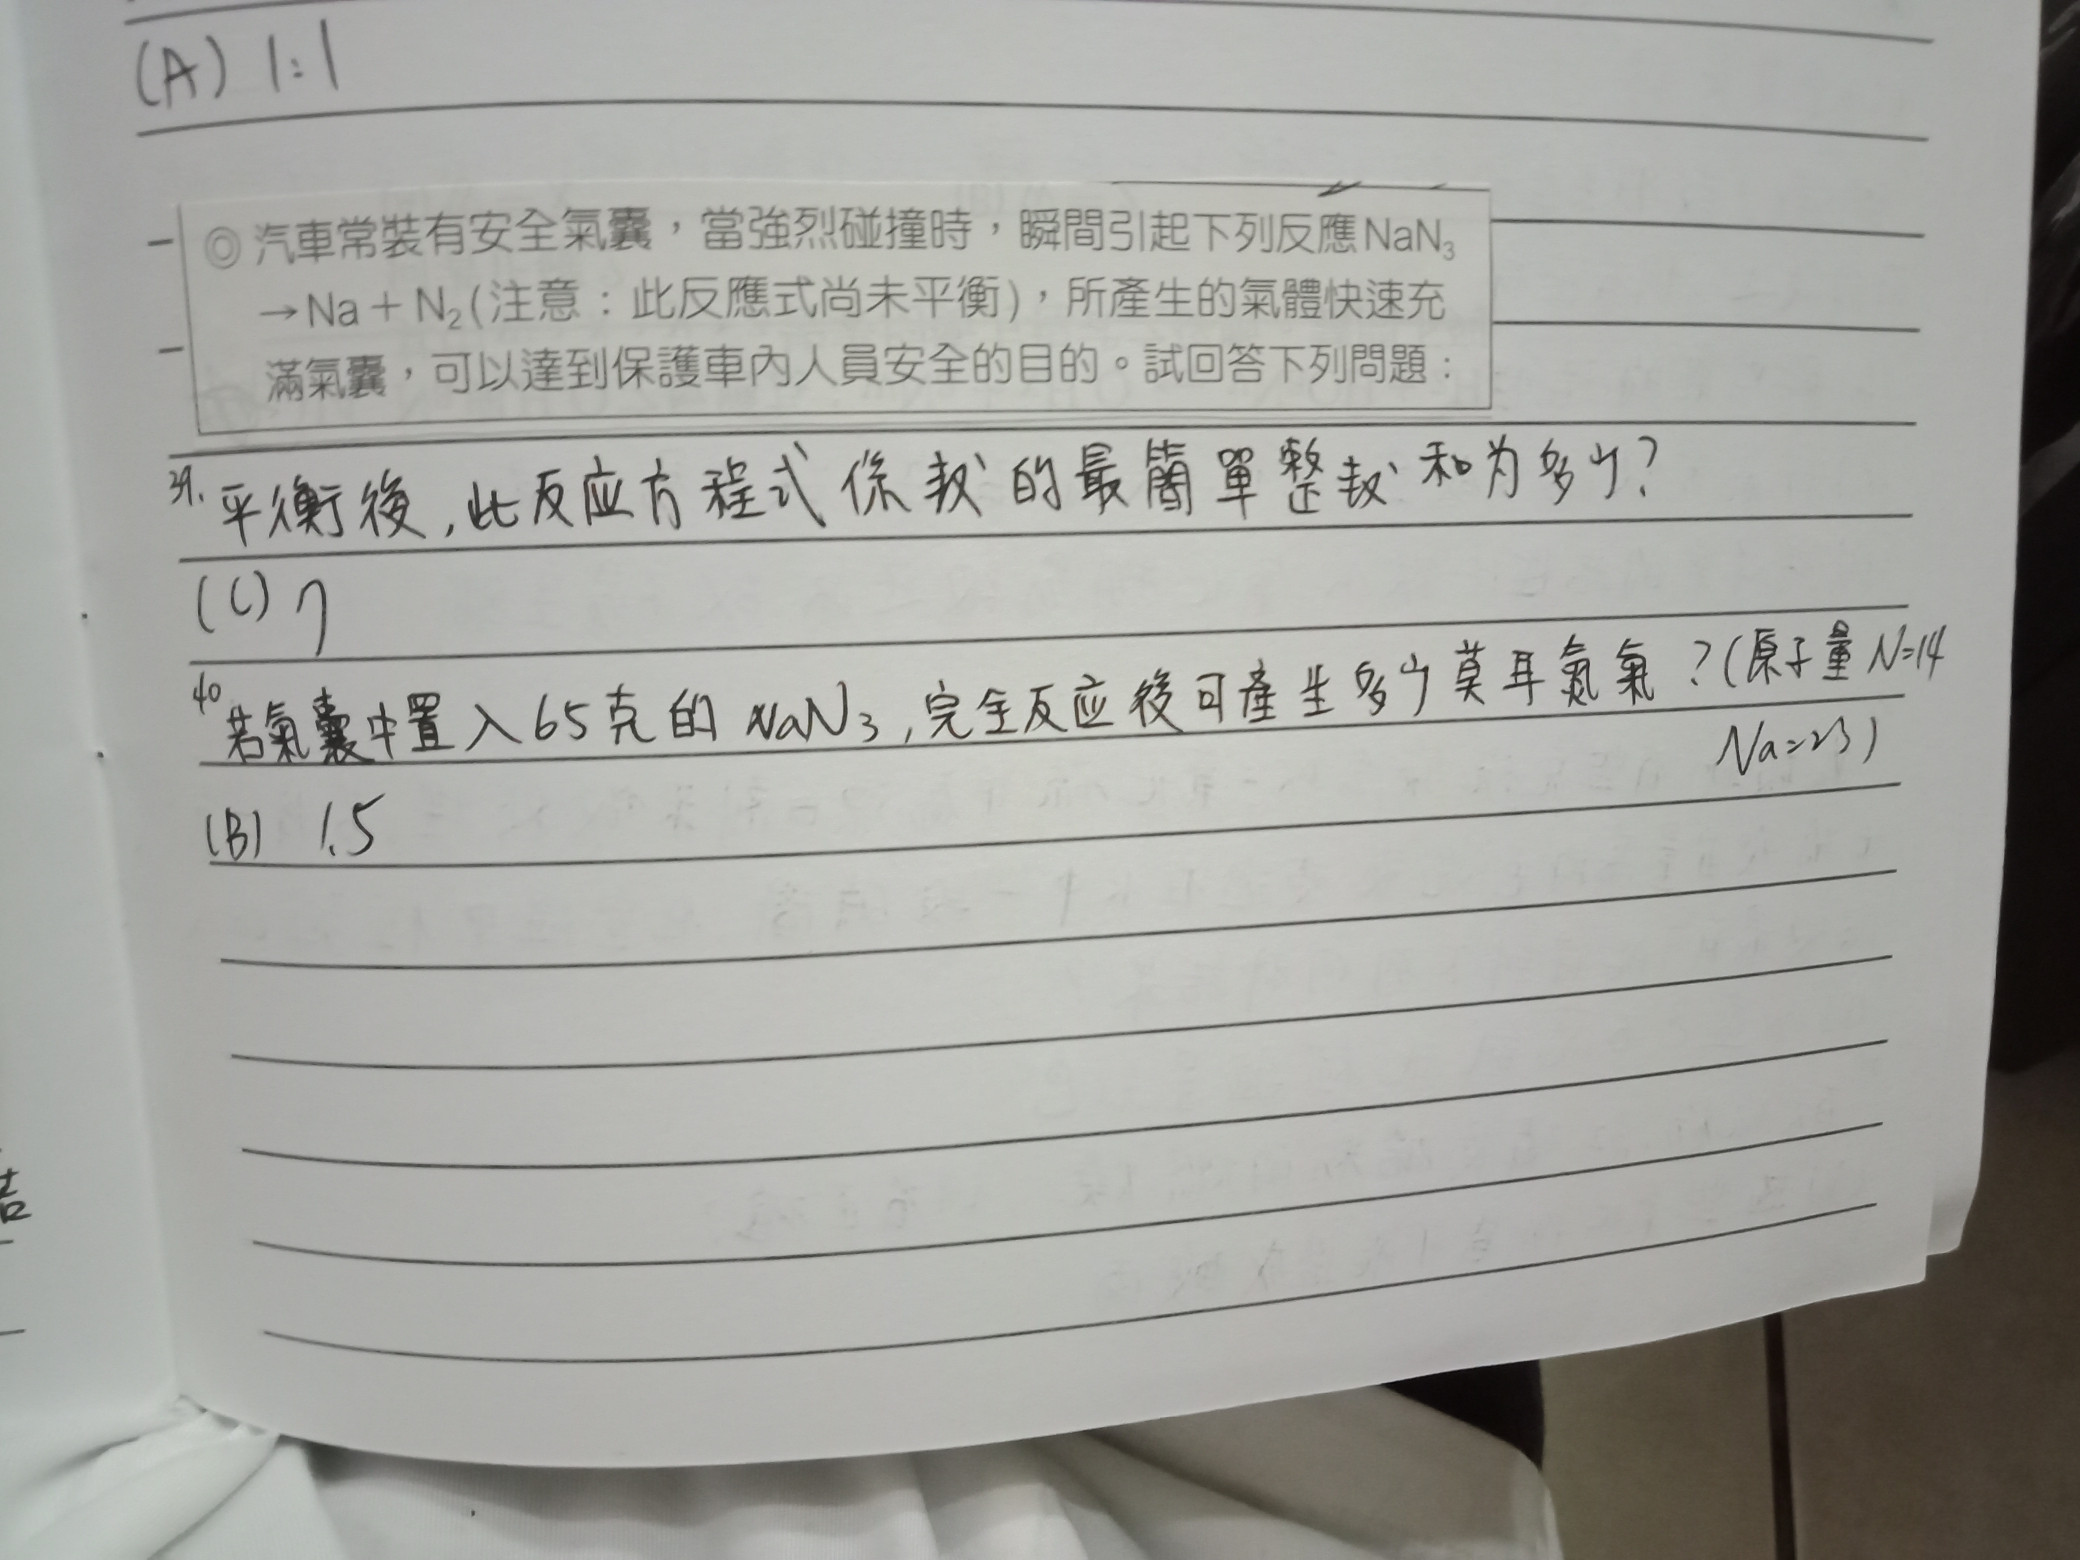 (A) 1:1
◎汽車常裝有安全氣囊，當強烈碰撞時，瞬間引起下列反應NaN₃
→Na＋N₂(注意：此反應式尚未平衡)，所產生的氣體快速充
滿氣囊，可以達到保護車內人員安全的目的。試回答下列問題：
39. 平衡後,此反应方程式係数的最簡單整数和为多少?
(C) 7
40 若氣囊中置入65克的NaN₃,完全反应後可產生多少莫耳氮氣?(原子量N=14
Na=23)
(B) 1.5